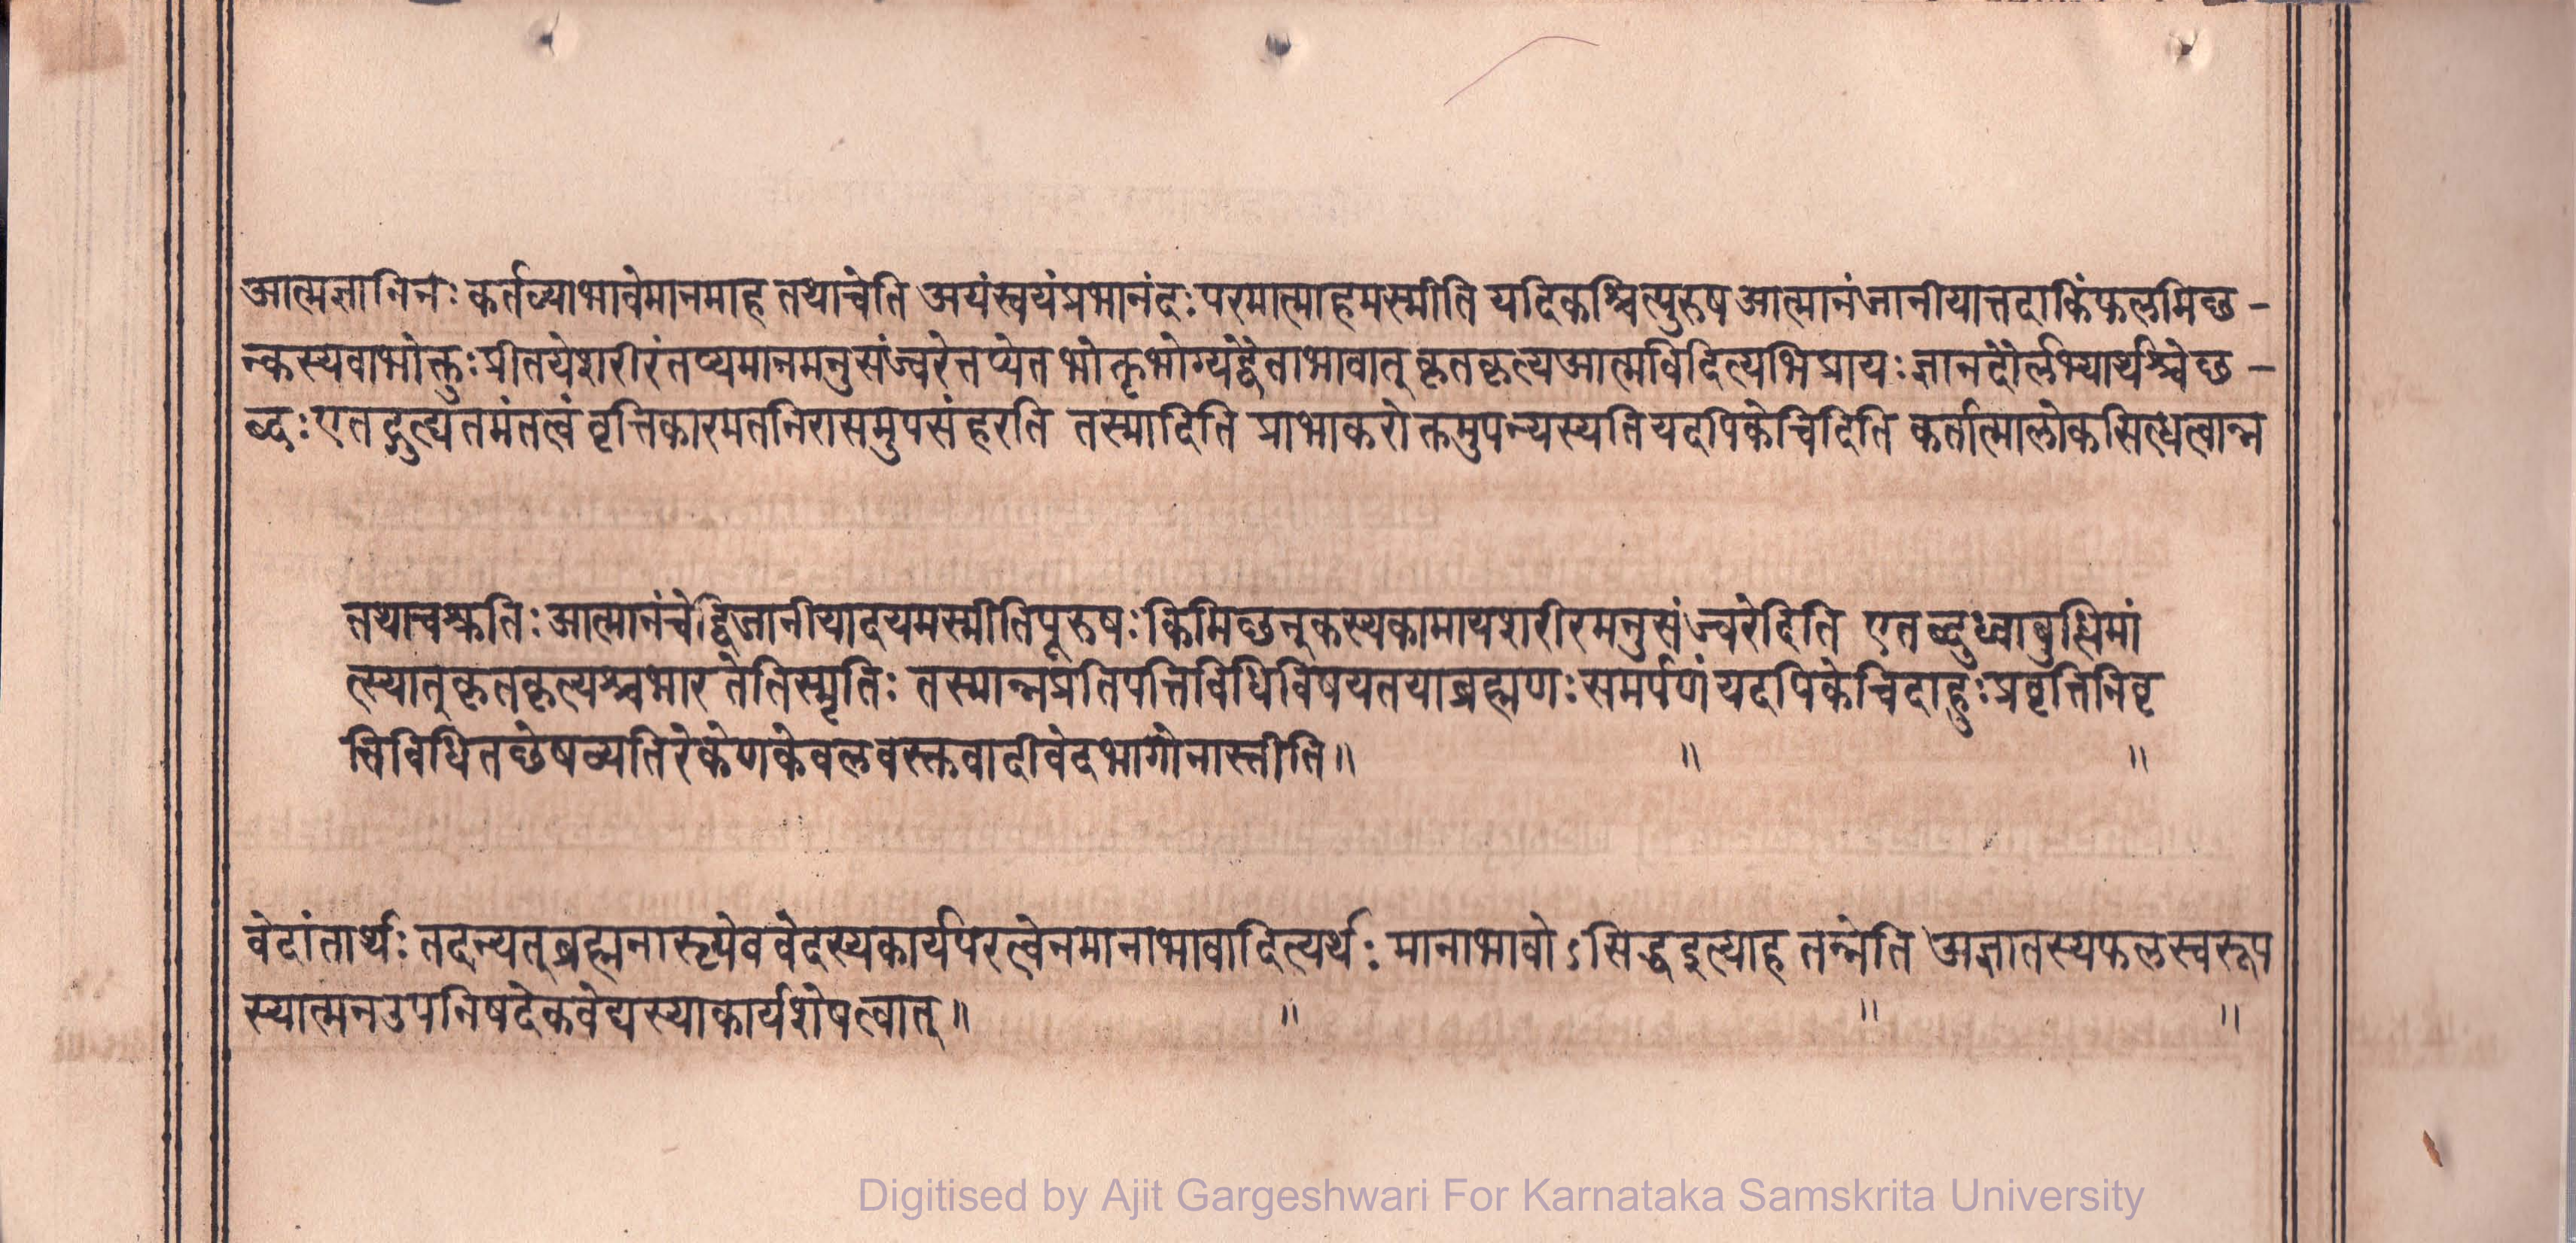 आत्मज्ञानिनः कर्तव्याभावेमानमाह तथाचेति अयंस्वयंप्रभानंदः परमात्माहमस्मीति यदिकश्चित्पुरुष आत्मानंजानीयात्तदाकिंफलमिछ-
न्कस्यवाभोक्तुःप्रीतयेशरीरंतप्यमानमनुसंज्वरेत्तप्येत भोक्तृभोग्यद्वैताभावात् कृतकृत्यआत्मविदित्यभिप्रायः ज्ञानदौर्लभ्यार्थश्चेछ-
ब्दः एतद्गुह्यतमंतत्वं वृत्तिकारमतनिरासमुपसंहरति तस्मादिति प्राभाकरोक्तमुपन्यस्यति यदपिकेचिदिति कर्तात्मालोकसित्धत्वान्न
तथाचश्रुतिः आत्मानंचेद्विजानीयादयमस्मीतिपूरुषः किमिछन्कस्यकामायशरीरमनुसंज्वरेदिति एतब्दुध्वाबुत्धिमां
त्स्यात्कृतकृत्यश्चभारतेतिस्मृतिः तस्मान्नप्रतिपत्तिविधिविषयतयाब्रह्मणः समर्पणं यदपिकेचिदाहुः प्रवृत्तिनिवृ
त्तिविधितछेषव्यतिरेकेणकेवलवस्तुवादीवेदभागोनास्तीति॥ ॥ ॥
वेदांतार्थः तदन्यत्ब्रह्मनास्त्येव वेदस्यकार्यपरत्वेनमानाभावादित्यर्थः मानाभावोऽसिद्धइत्याह तन्नेति अज्ञातस्यफलस्वरूप
स्यात्मनउपनिषदेकवेद्यस्याकार्यशेषत्वात्॥ ॥ ॥ ॥
Digitised by Ajit Gargeshwari For Karnataka Samskrita University